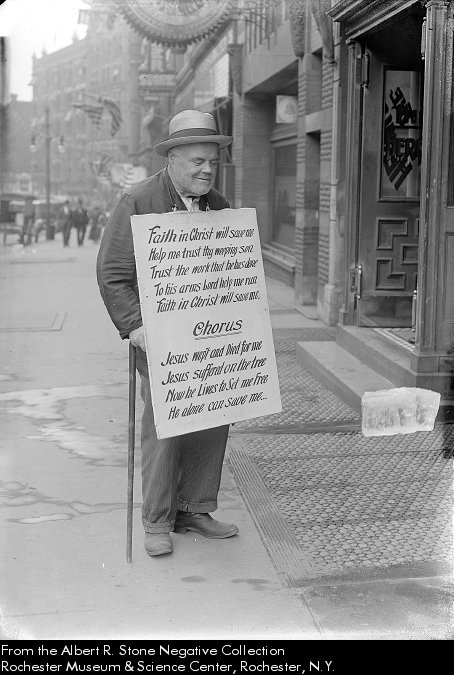 Faith in Christ will save me
Help me trust thy weeping son
Trust the work that he has done
To his arms Lord help me run
Faith in Christ will save me.
Chorus
Jesus wept and Died for me
Jesus sufferd on the tree
Now he Lives to Set me free
He alone can save me...
From the Albert R. Stone Negative Collection
Rochester Museum & Science Center, Rochester, N.Y.